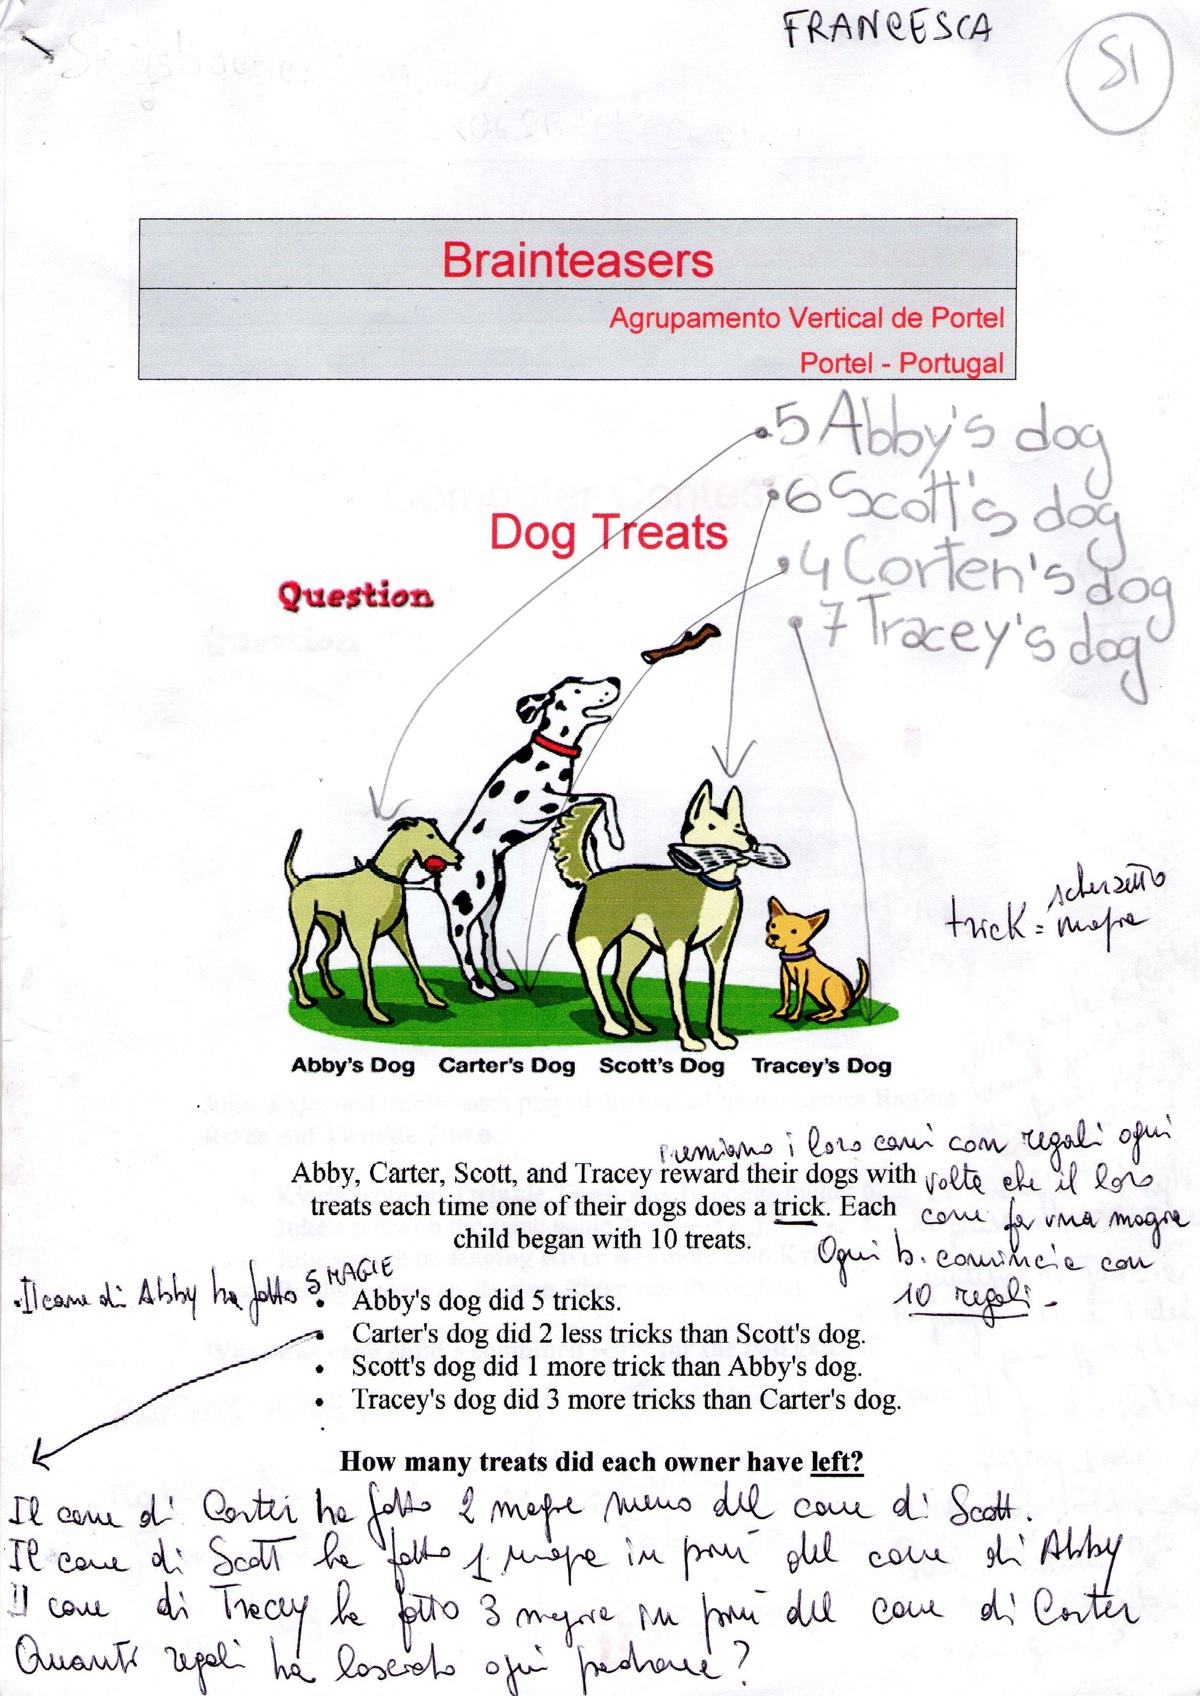 FRANCESCA
SI
Brainteasers
Agrupamento Vertical de Portel
Portel - Portugal
5 Abby's dog
6 Scott's dog
4 Corten's dog
7 Tracey's dog
Dog Treats
Question
trick = scherzetto
magia
Abby's Dog Carter's Dog Scott's Dog Tracey's Dog
premiano i loro cani con regali ogni
volta che il loro
cane fa una magia
Ogni b. comincia con
10 regali -
Abby, Carter, Scott, and Tracey reward their dogs with
treats each time one of their dogs does a trick. Each
child began with 10 treats.
.Il cane di Abby ha fatto 5 MAGIE
• Abby's dog did 5 tricks.
• Carter's dog did 2 less tricks than Scott's dog.
• Scott's dog did 1 more trick than Abby's dog.
• Tracey's dog did 3 more tricks than Carter's dog.
How many treats did each owner have left?
Il cane di Carter ha fatto 2 magie meno del cane di Scott.
Il cane di Scott ha fatto 1 magia in più del cane di Abby
Il cane di Tracey ha fatto 3 magie in più del cane di Carter
Quanti regali ha lasciato ogni padrone?